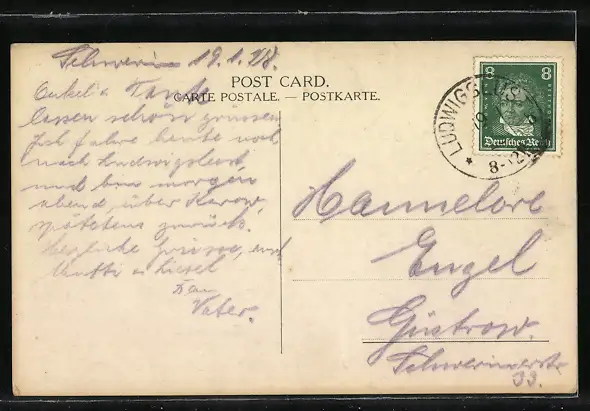 Schwerin 19.1.28.
POST CARD.
CARTE POSTALE. — POSTKARTE.
Onkel u Tante
lassen schön grüssen
Ich fahre heute noch
nach Ludwigslust
und bin morgen
abend, über Karow,
spätestens zurück.
Herzliche Grüsse, auch
Mutti u Liesel
Dein
Vater.
8 8
Deutsches Reich
LUDWIGSLUST
8-12
Hannelore
Engel
Güstrow.
Schwerinerstr
33.